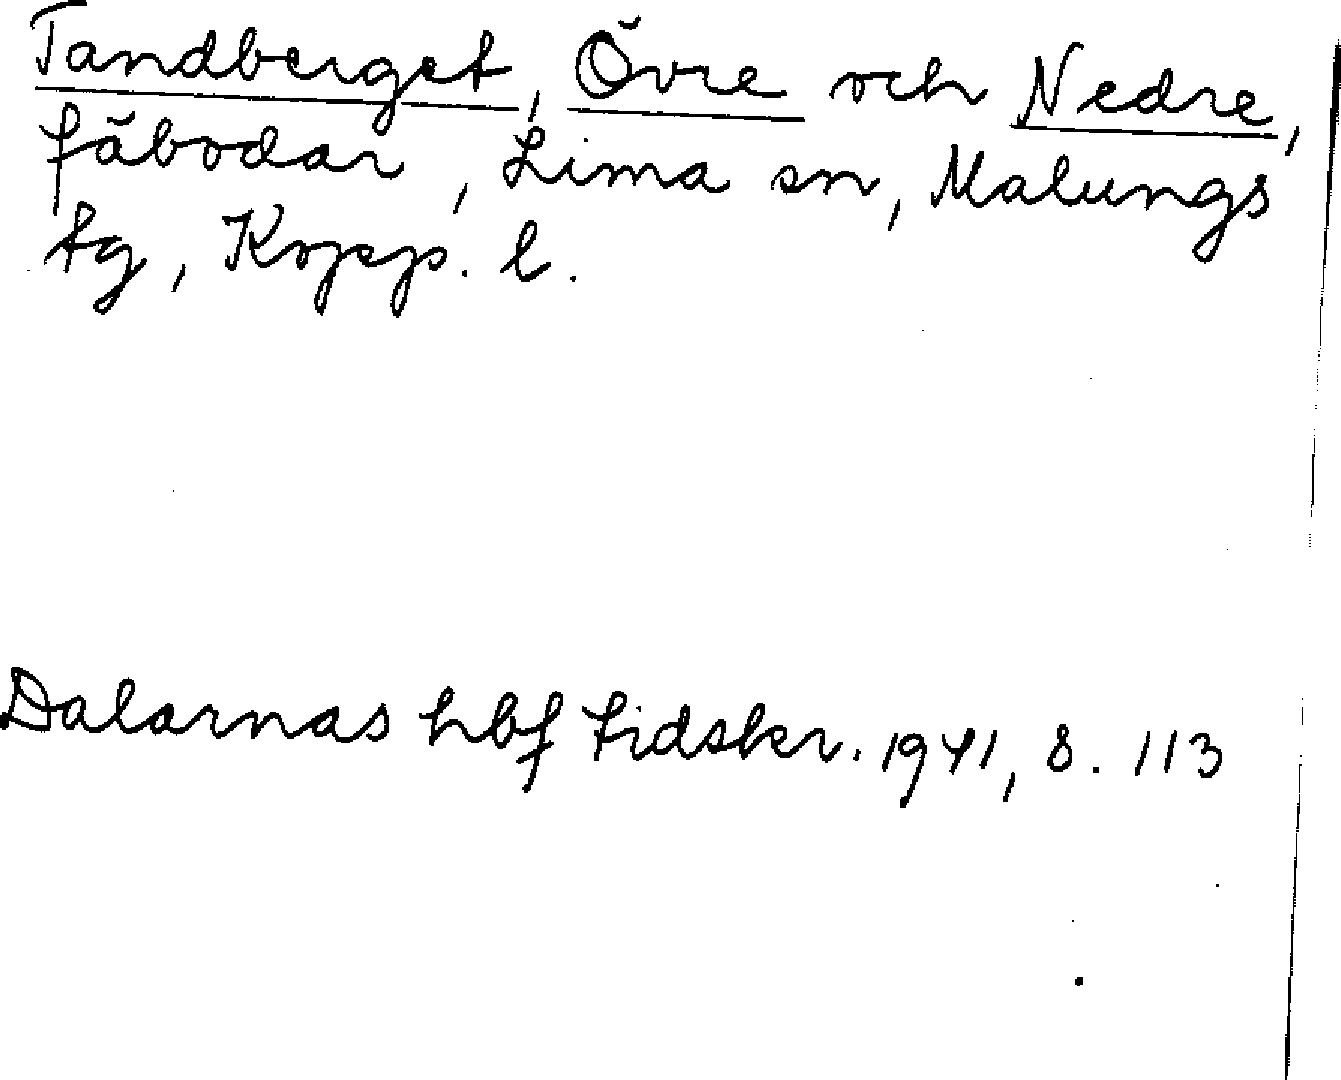 Tandberget, Övre och Nedre,
fäbodar, Lima sn, Malungs
tg, Kopp. l.
Dalarnas hbf tidskr. 1941, s. 113